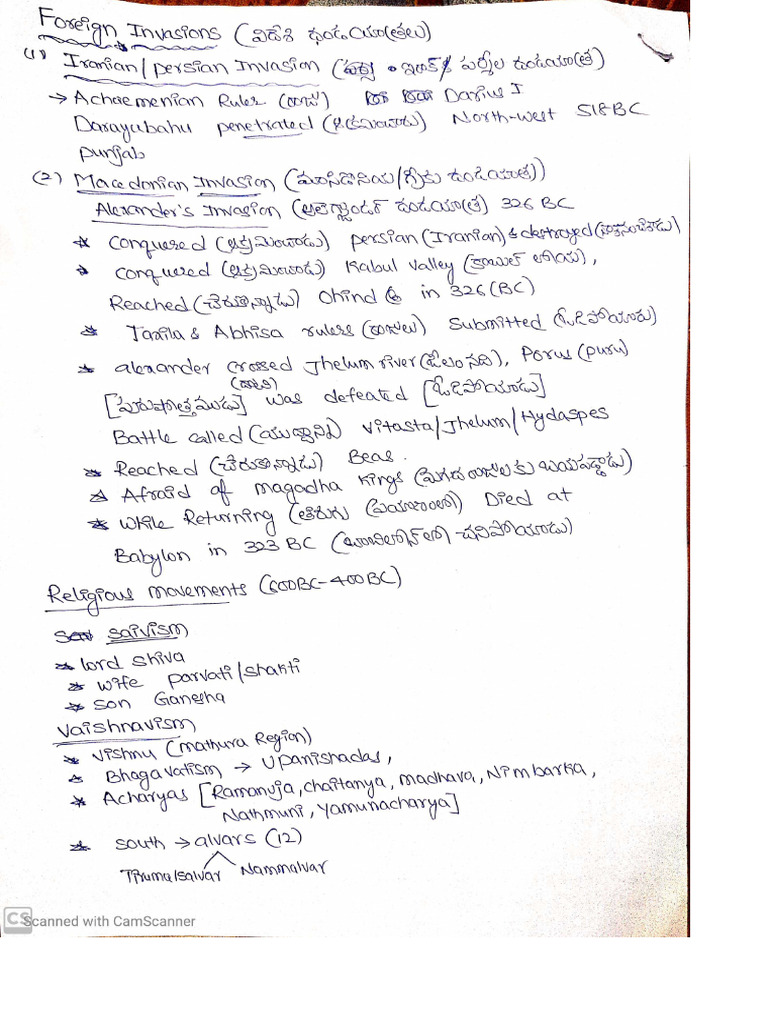 Foreign Invasions (విదేశీ దండయాత్రలు)
(1) Iranian/Persian Invasion ( పర్షియా దండయాత్ర)
→ Achaemenian Ruler (రాజు) Darius I
Darayabahu penetrated (ఆక్రమించాడు) North-West 518BC
punjab
(2) Macedonian Invasion (మాసిడోనియ/గ్రీకు దండయాత్ర))
Alexander's Invasion (అలెగ్జాండర్ దండయాత్ర) 326 BC
* conquered (ఆక్రమించాడు) persian (Iranian) & destroyed
* conquered (ఆక్రమించాడు) Kabul valley (కాబుల్ లోయ),
Reached (చేరుకున్నాడు) Ohind in 326(BC)
* Taxila & Abhisa rulers (రాజులు) Submitted (ఓడిపోయారు)
* alexander crossed Jhelum river (జీలం నది), Porus (puru)
(రాజుని)
[పురుషోత్తముడు] was defeated [ఓడిపోయాడు]
Battle called (యుద్ధాన్ని) vitasta/Jhelum/Hydaspes
* Reached (చేరుకున్నాడు) Beas.
* Afraid of magadha kings (మగధ రాజులకు భయపడ్డాడు)
* While Returning (తిరుగు ప్రయాణంలో) Died at
Babylon in 323 BC (బాబిలోన్ లో చనిపోయాడు)
Religious movements (600BC-400BC)
saivism
* lord shiva
* wife parvati/shakti
* son Ganesha
vaishnavism
* vishnu (mathura Region)
* Bhagavatism → Upanishadas,
* Acharyas [Ramanuja, chaitanya, madhava, Nimbarka,
Nathmuni, Yamunacharya]
* south → alvars (12)
Tirumalsalvar Nammalvar
CS Scanned with CamScanner